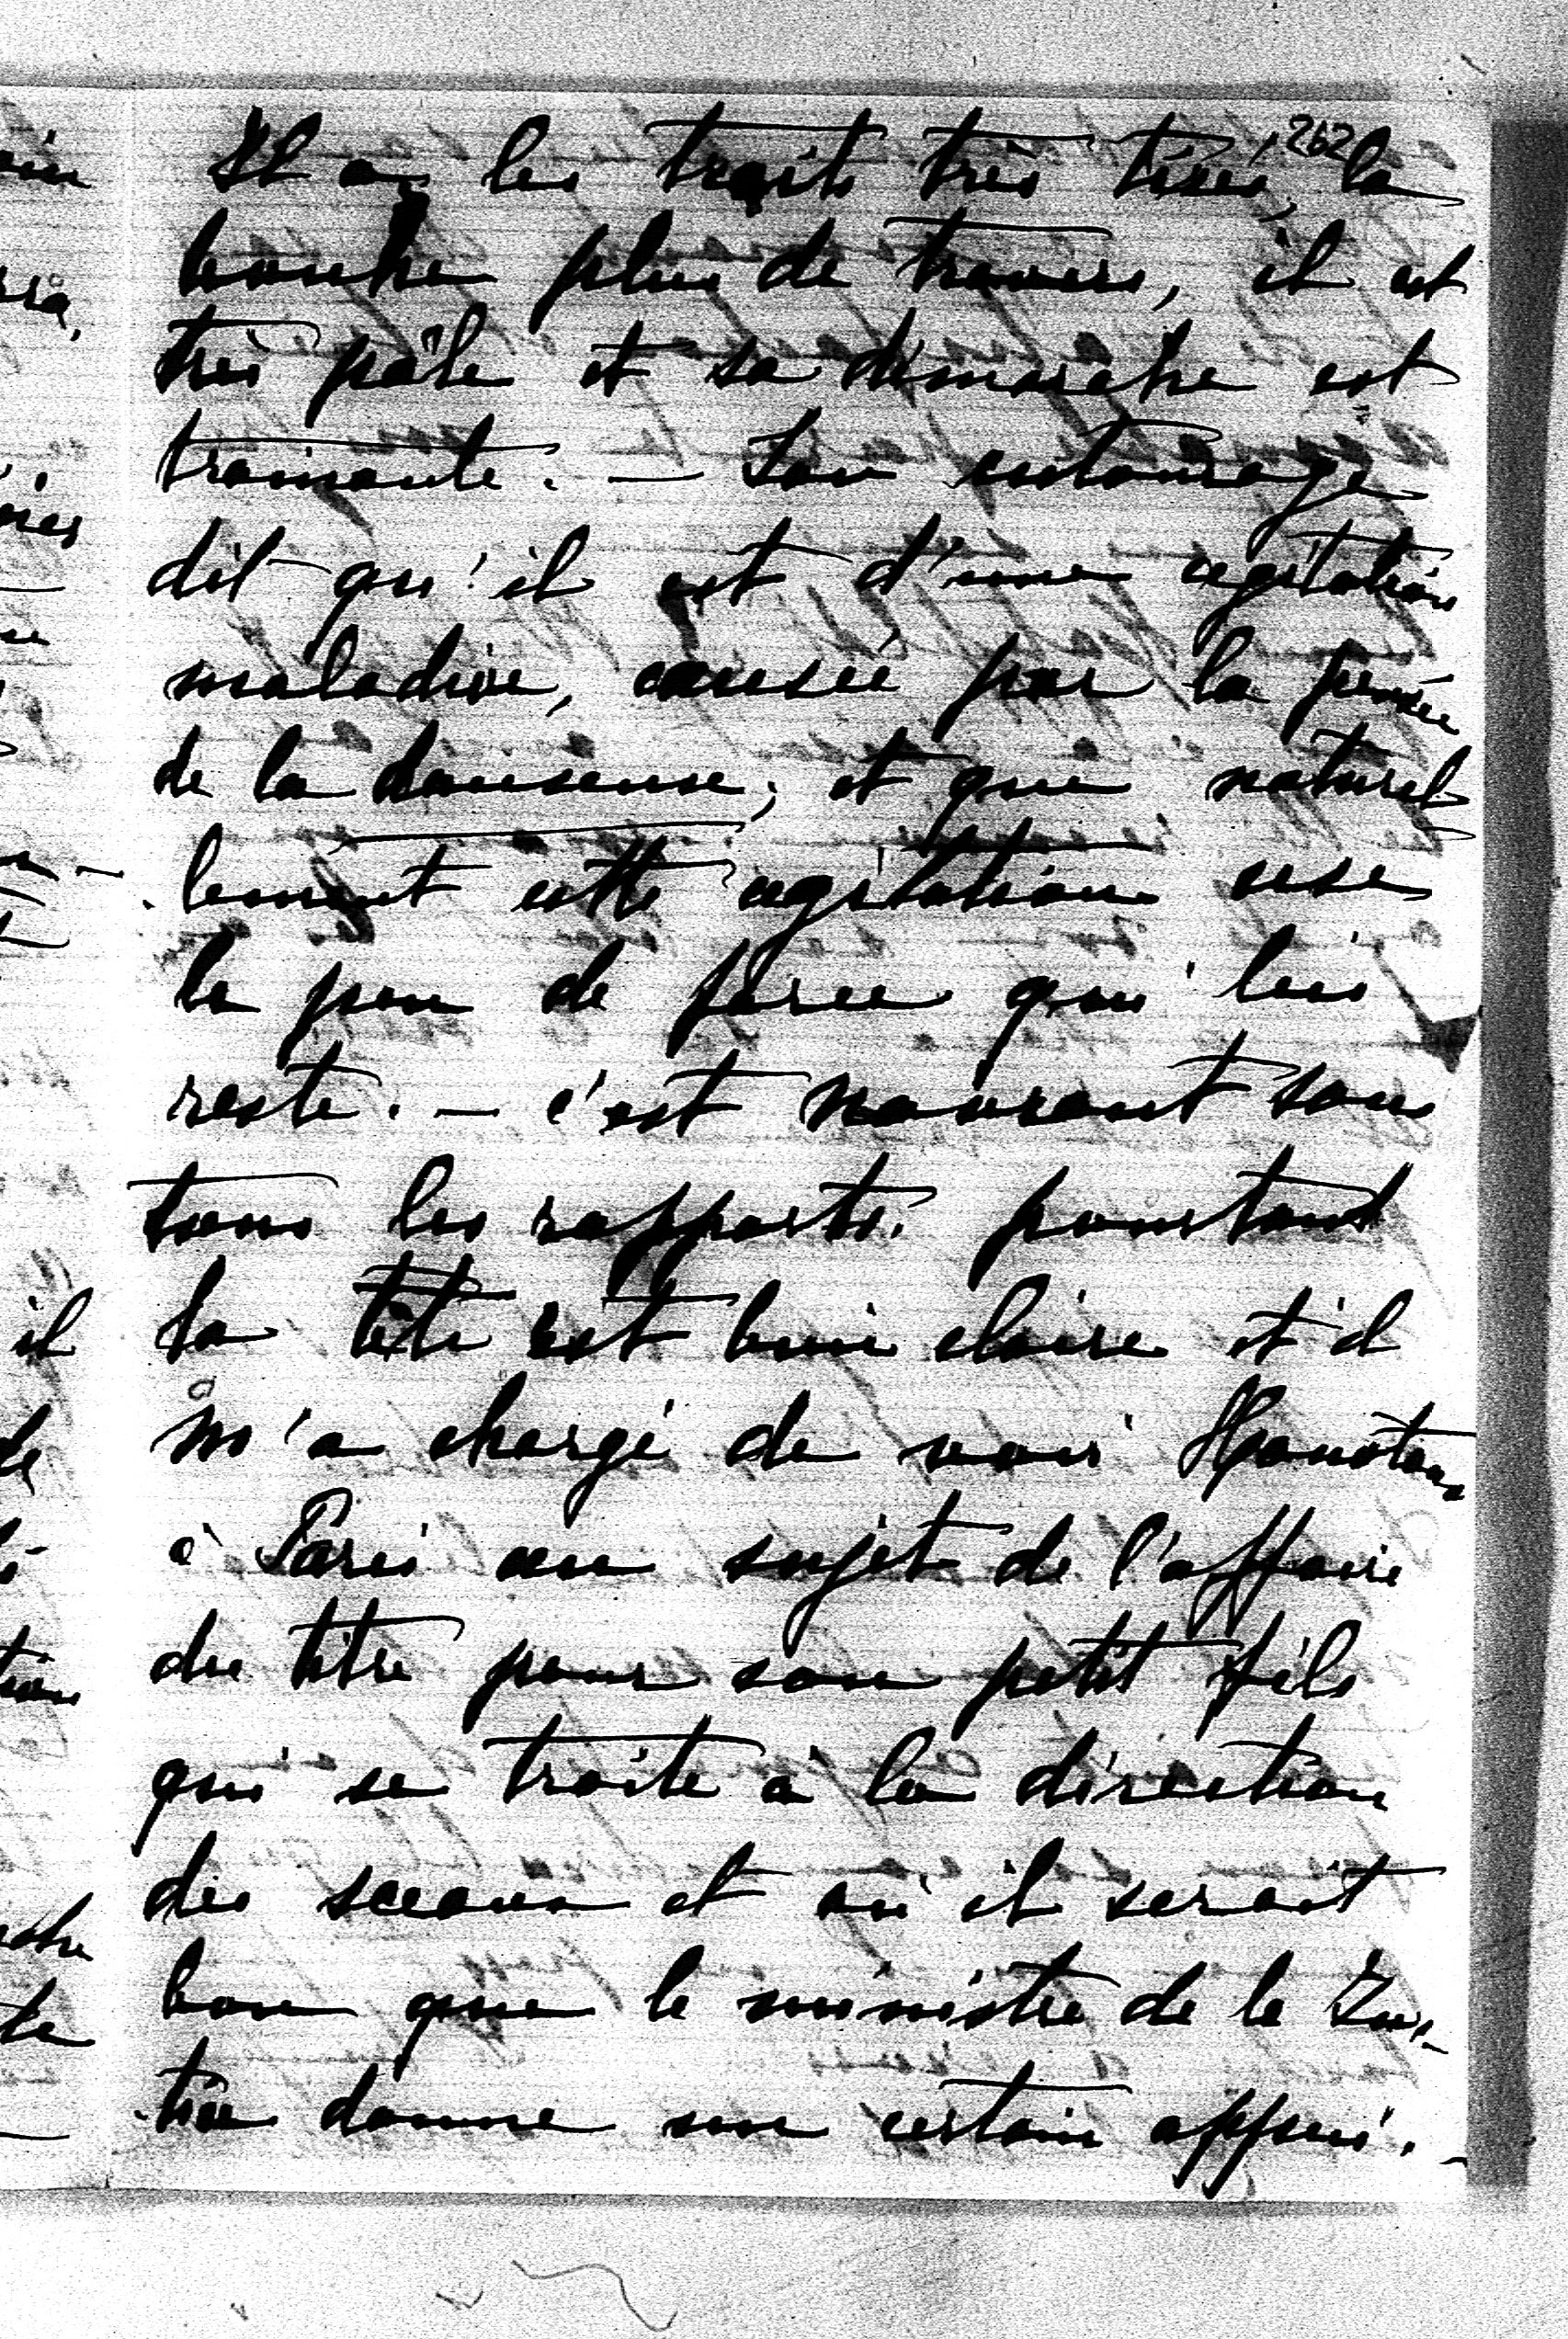 262
Il a les traits très tirés, la
bouche plus de travers, il est
très pâle et sa démarche est
trainante. — Son entourage
dit qu'il est d'une agitation
maladive, causée par la pensée
de la danseuse, et que naturel
lement cette agitation use
le peu de force qui lui
reste. — c'est navrant sous
tous les rapports. pourtant
la tête est bien claire et il
m'a chargé de voir Hanotaux
à Paris au sujet de l'affaire
du titre pour son petit fils
qui se traite à la direction
des sceaux et où il serait
bon que le ministre de la Jus-
tice donne un certain appui. —